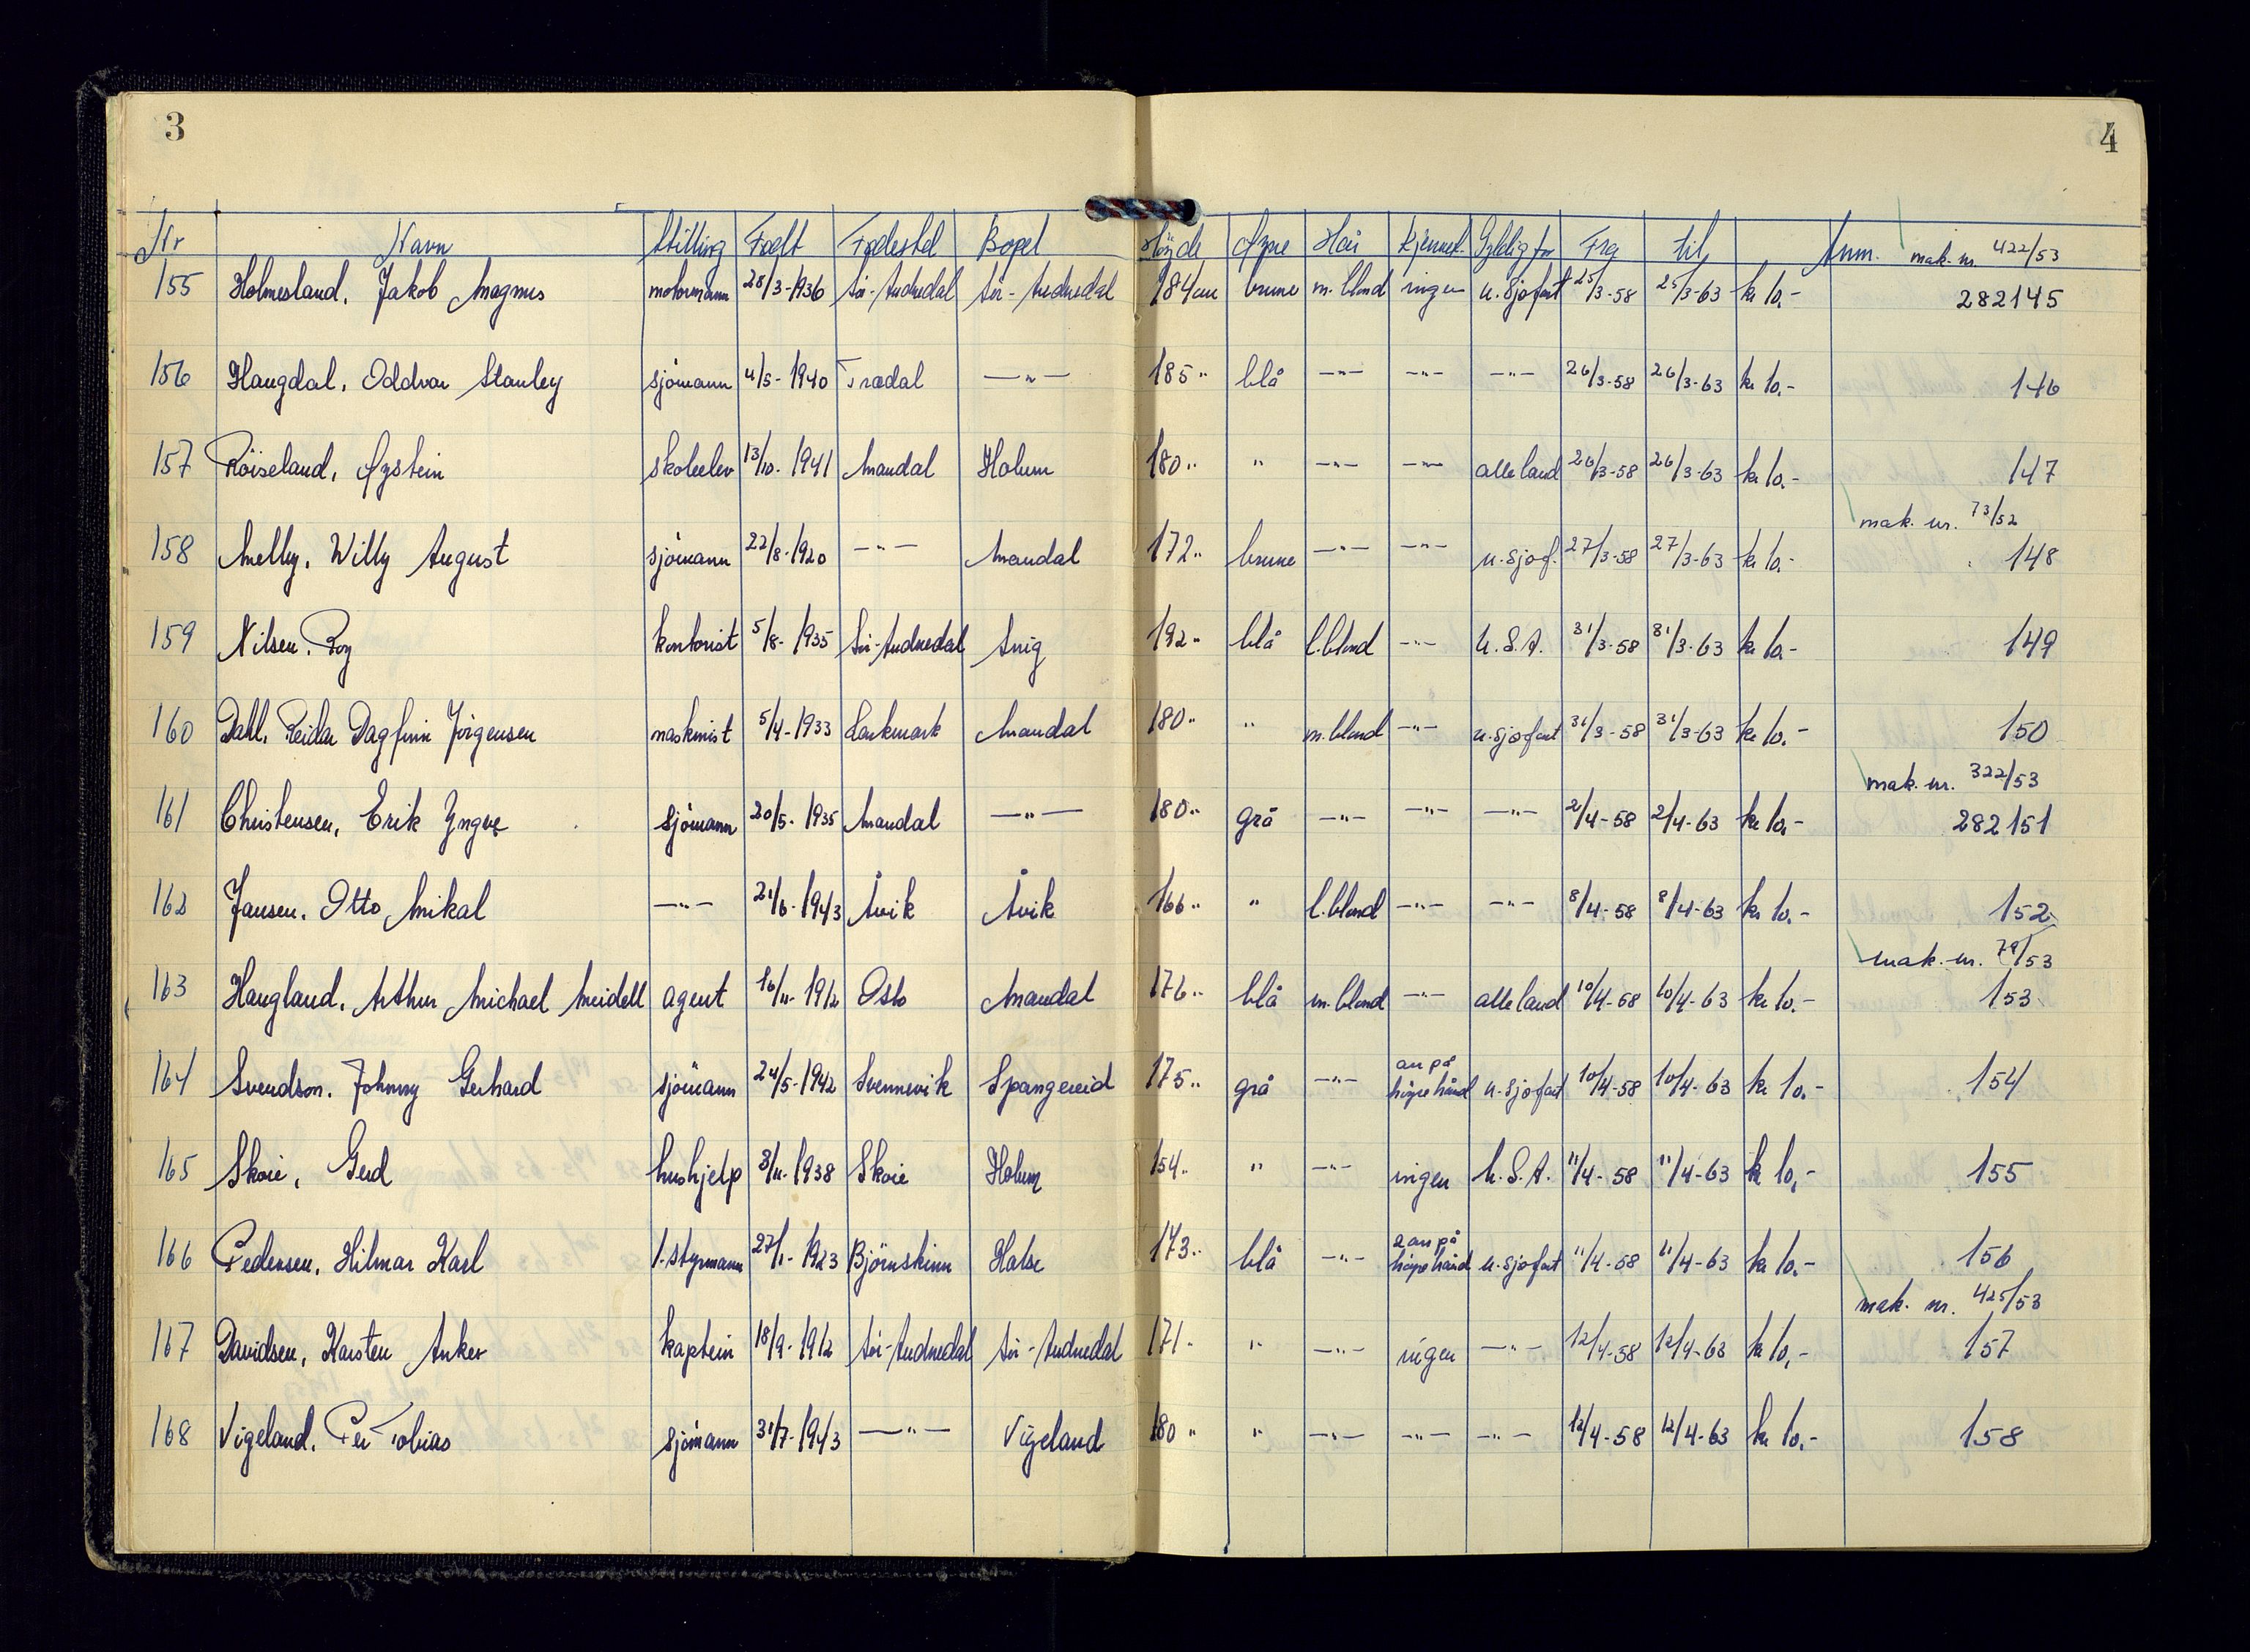 3
4
Nr Navn Stilling Född Fødestd Bopel Höyde Øyne Hår Kjennet. Gyldig for Fra til Anm. mak. nr. 422/53
155 Holmesland, Jakob Magnus motormann 28/3-1936 Sör-Audnedal Sör-Audnedal 184 cm brune m. blond ingen u. sjøfart 25/3-58 25/3-63 kr 10.- 282145
156 Haugdal, Oddvar Stanley sjömann 4/5-1940 Tredal —"— 185 " blå —"— —"— —"— 26/3-58 26/3-63 kr 10.- 146
157 Röiseland, Øystein skoleelev 13/10-1941 Mandal Holum 180 " " —"— —"— alle land 26/3-58 26/3-63 kr 10.- 147
mak. nr. 73/52
158 Melby, Willy August sjömann 22/8-1920 —"— Mandal 172 " brune —"— —"— u. sjøf. 27/3-58 27/3-63 kr 10.- 148
159 Nilsen, Roy kontorist 5/8-1935 Sör-Audnedal Snig 192 " blå l. blond —"— U.S.A. 31/3-58 31/3-63 kr 10.- 149
160 Dahl, Reidar Dagfinn Jörgensen maskinist 5/4-1933 Harkmark Mandal 180 " " m. blond —"— u. sjøfart 31/3-58 31/3-63 kr 10.- 150
mak. nr. 322/53
161 Christensen, Erik Yngve sjömann 20/5-1935 Mandal —"— 180 " grå —"— —"— —"— 2/4-58 2/4-63 kr 10.- 282151
162 Jansen, Otto Mikal —"— 21/6-1943 Åvik Åvik 166 " " l. blond —"— —"— 8/4-58 8/4-63 kr 10.- 152
mak. nr. 79/53
163 Haugland, Arthur Michael Meidell agent 16/11-1912 Oslo Mandal 176 " blå m. blond —"— alle land 10/4-58 10/4-63 kr 10.- 153
164 Svendson, Johnny Gerhard sjömann 24/5-1942 Svennevik Spangereid 175 " grå —"— arr på höyre hånd u. sjøfart 10/4-58 10/4-63 kr 10.- 154
165 Skoie, Gerd hushjelp 3/11-1938 Skoie Holum 154 " " —"— ingen U.S.A. 11/4-58 11/4-63 kr 10,- 155
166 Pedersen, Hilmar Karl 1. styrmann 27/1-1923 Björnskinn Halse 173 " blå —"— 2 arr på höyre hånd u. sjøfart 11/4-58 11/4-63 kr 10.- 156
mak. nr. 425/53
167 Davidsen, Karsten Anker kaptein 18/9-1912 Sör-Audnedal Sör-Audnedal 171 " " —"— ingen —"— 12/4-58 12/4-63 kr 10,- 157
168 Vigeland, Per Tobias sjömann 31/7-1943 —"— Vigeland 180 " " —"— —"— —"— 12/4-58 12/4-63 kr 10.- 158